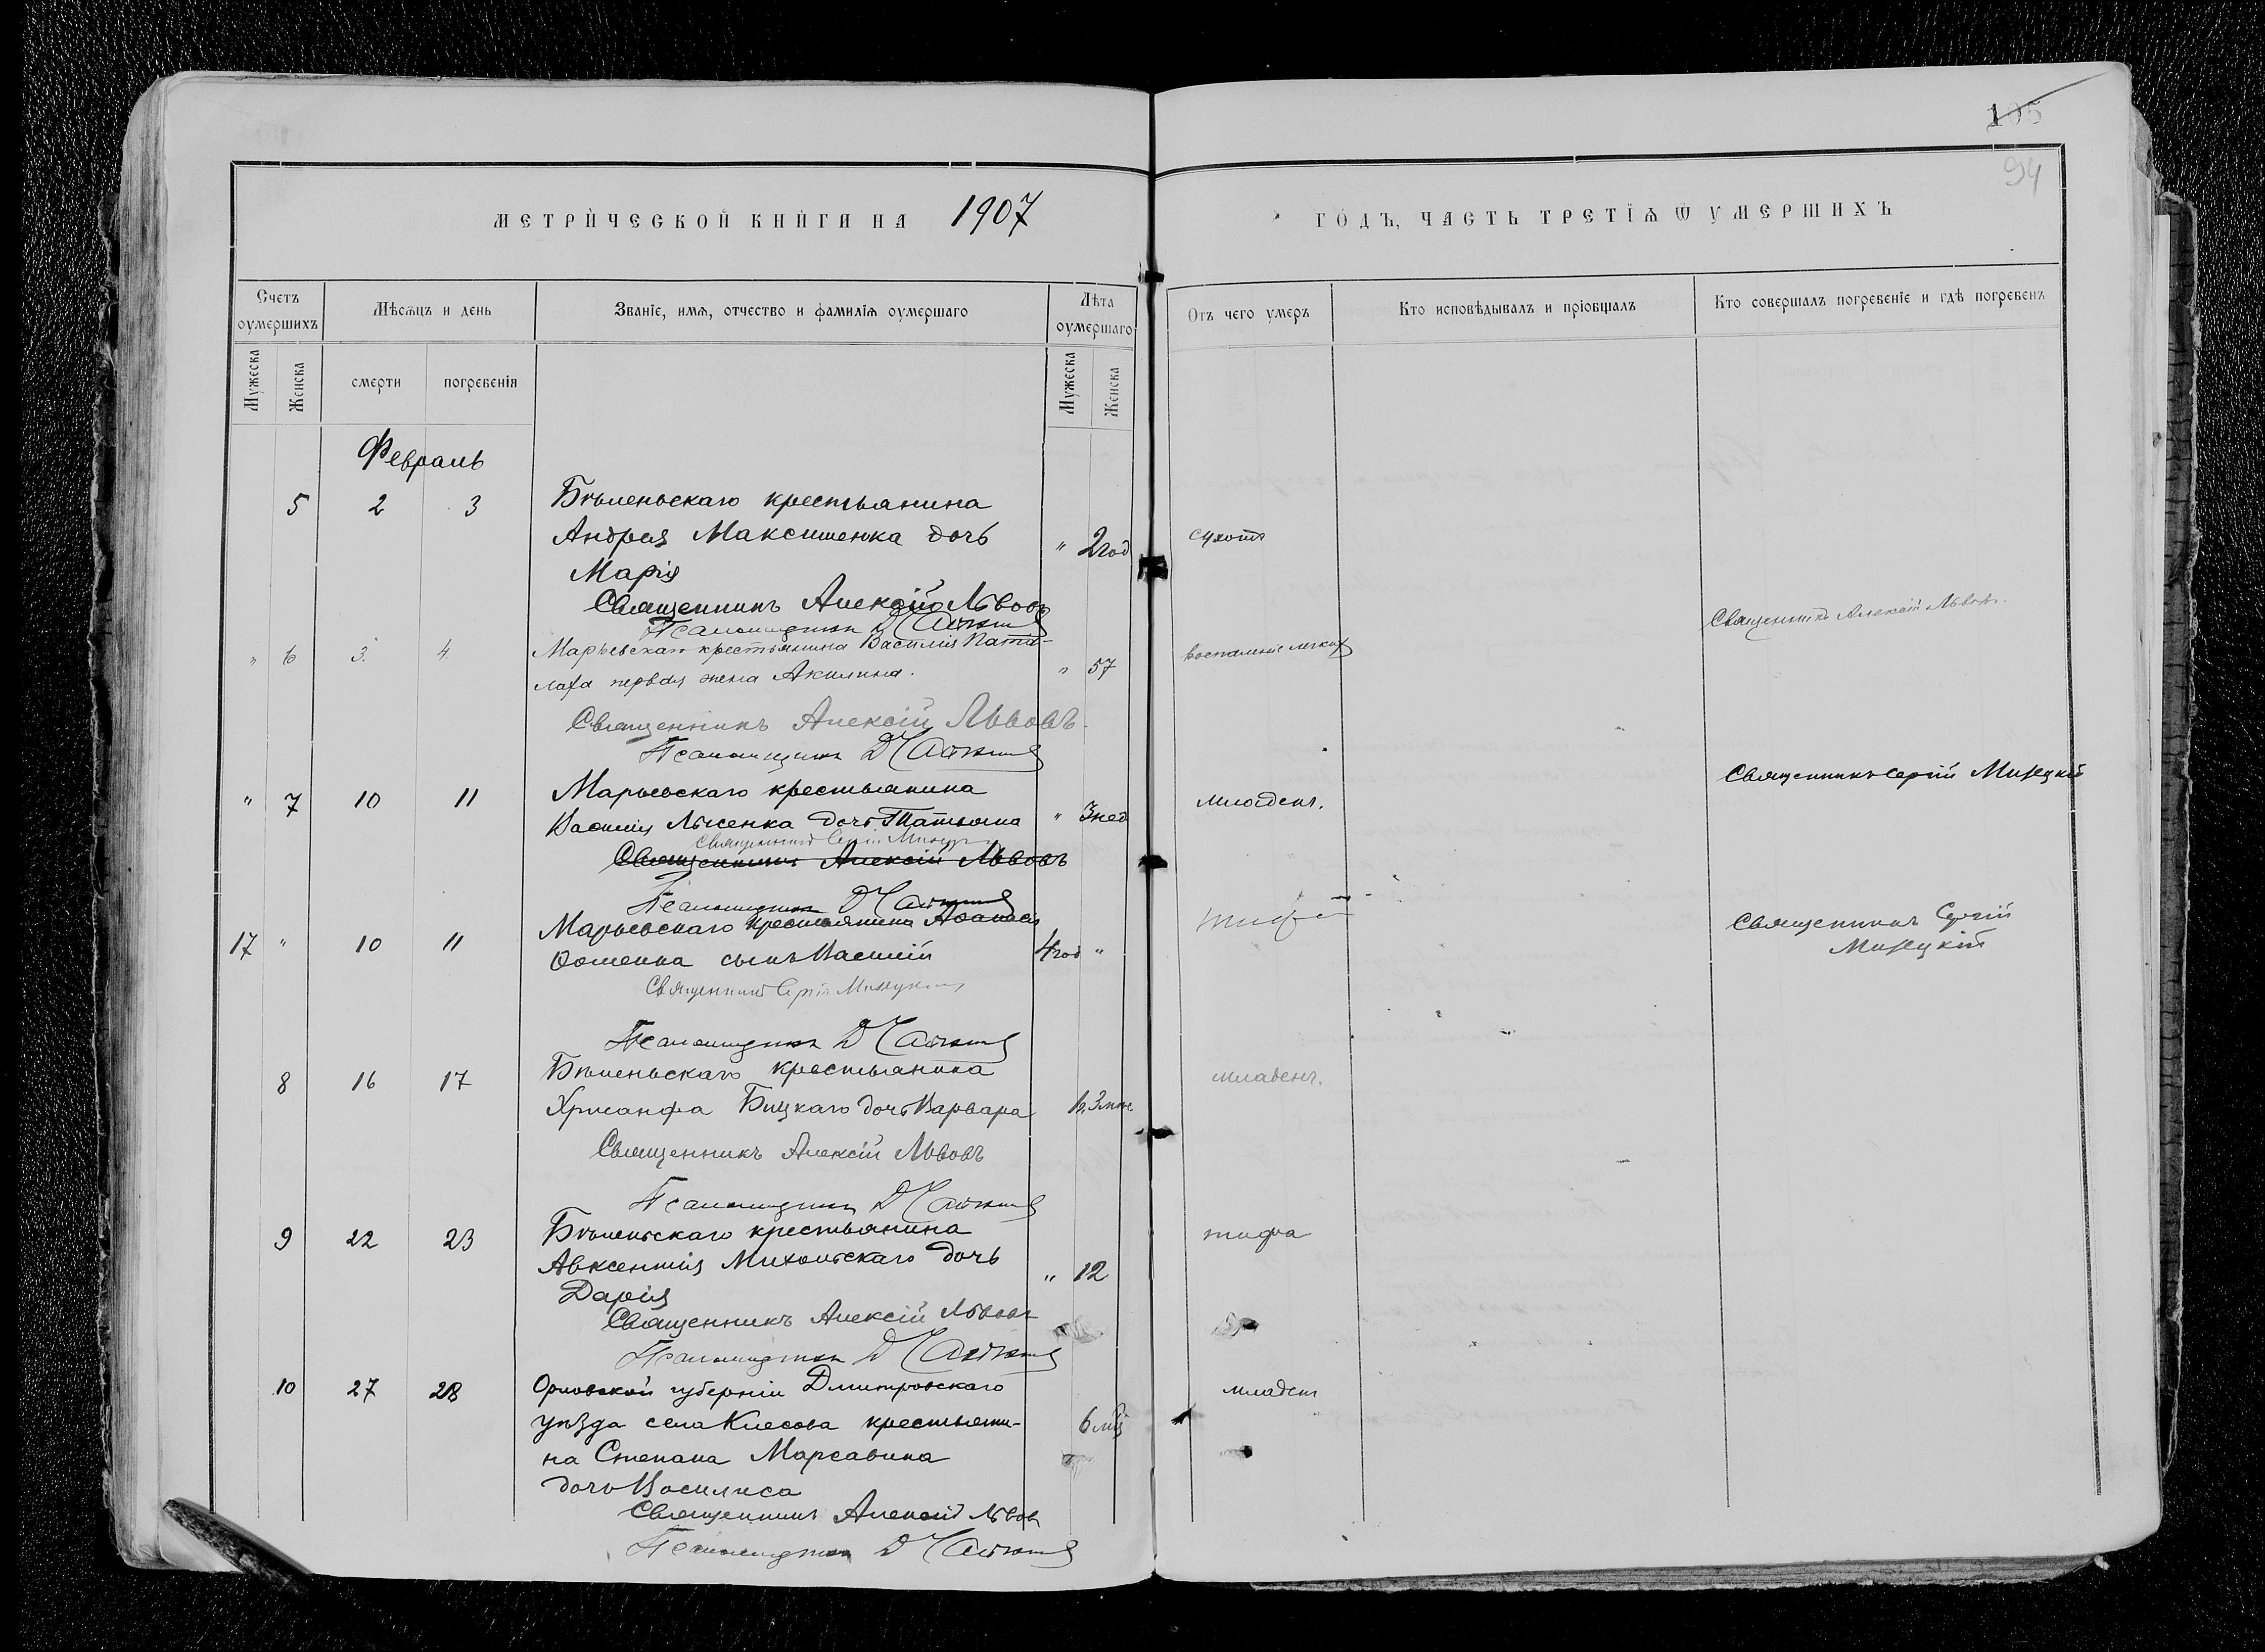 195
94
МЕТРИЧЕСКОЙ КНИГИ НА 1907 ГОДЪ, ЧАСТЬ ТРЕТІѦ Ѿ УМЕРШИХЪ
Счетъ оумершихъ
Мѣсѧцъ и день
Званіе, имѧ, отчество и фамиліѧ оумершаго
Лѣта оумершаго
Отъ чего умеръ
Кто исповѣдывалъ и пріобщалъ
Кто совершалъ погребеніе и гдѣ погребенъ
Мужеска
Женска
смерти
погребенія
Мужеска
Женска
Февраль
5 2 3 Бѣленьскаго крестьянина
Андрея Максименка дочь " 2 год
Марія
Священникъ Алексій Львовъ
Псаломщикъ Д
Священникъ Алексій Львовъ
" 6 3. 4. Марьевскаго крестьянина Василія
первая жена Акилина. " 57 воспаленіе легких
Священникъ Алексій Львовъ.
Псаломщикъ Д
" 7 10 11 Марьевскаго крестьянина
Василія Лысенка дочь Татьяна " 3 нед младенч.
Священникъ Сергій Мизецкій
Священникъ Сергій
Священникъ Алексій Львовъ
Псаломщикъ Д
17 " 10 11 Марьевскаго крестьянина Афанасія
сынъ Василій 4 год " тифа
Священникъ Сергій
Мизецкій
Священникъ Сергій Мизецкій
Псаломщикъ Д
8 16 17 Бѣленьскаго крестьянина
Хрисанфа Бицкаго дочь Варвара младенч.
Священникъ Алексій Львовъ
Псаломщикъ Д
9 22 23 Бѣленьскаго крестьянина тифа
Авксентія дочь " 12
Дарія
Священникъ Алексій Львовъ
Псаломщикъ Д
10 27 28 Орловской губерніи Дмитровскаго младен
уѣзда села Клесова крестьяни- 6 мѣс
на Степана Марсавина
дочь Василиса
Священникъ Алексій Львовъ
Псаломщикъ Д